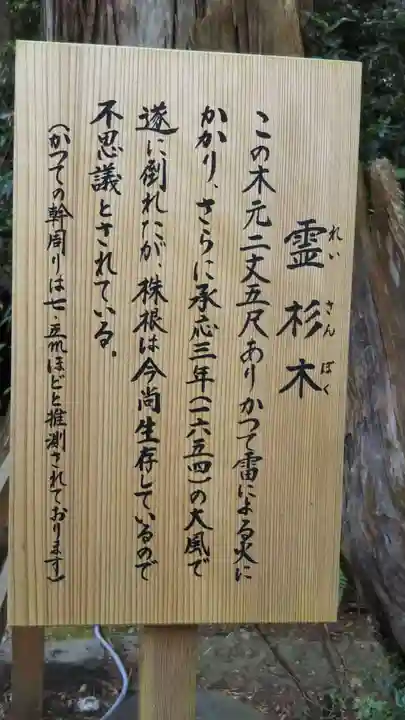 霊杉木
れい
さん
ぼく
この木元二丈五尺ありかつて雷による火に
かかり、さらに承応三年(一六五四)の大風で
遂に倒れたが、株根は今尚生存しているので
不思議とされている。
(かつての幹周りは七・五㍍ほどと推測されております)